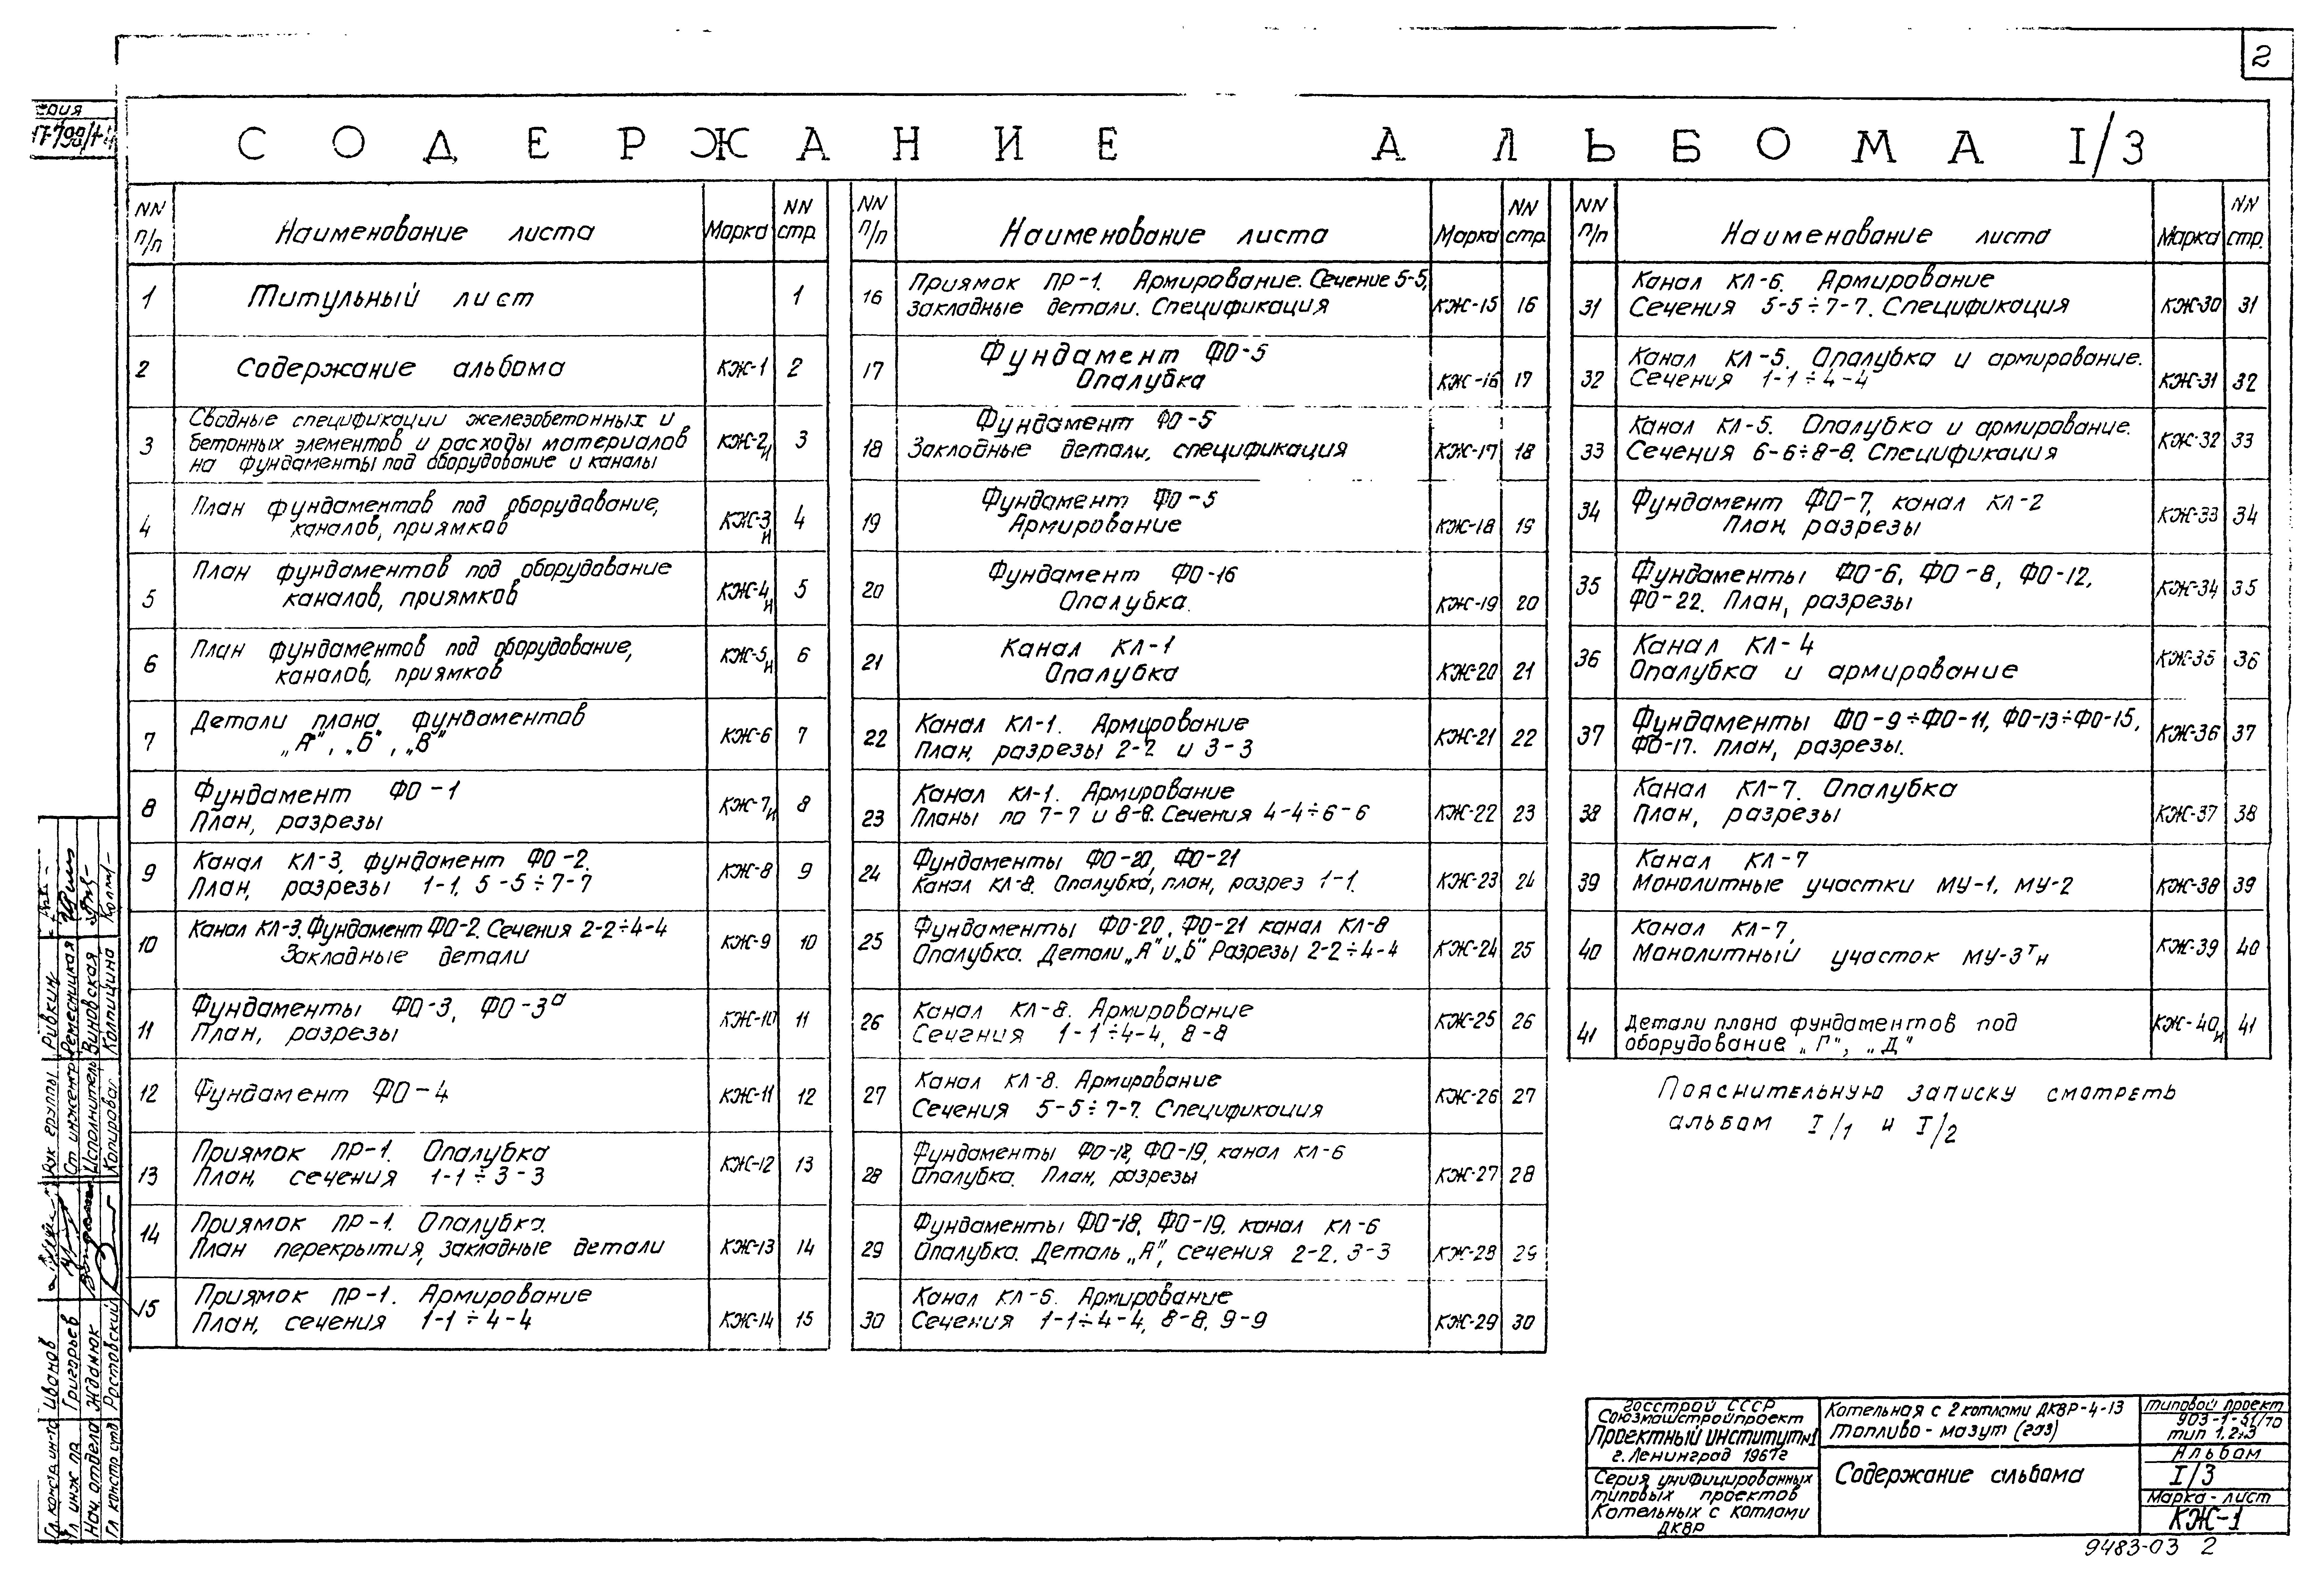 2
СОДЕРЖАНИЕ АЛЬБОМА I/3
NN п/п Наименование листа Марка NN стр.
1 Титульный лист 1
2 Содержание альбома КЖ-1 2
Сводные спецификации железобетонных и
3 бетонных элементов и расходы материалов КЖ-2и 3
на фундаменты под оборудование и каналы
План фундаментов под оборудование,
4 каналов, приямков КЖ-3и 4
План фундаментов под оборудование
5 каналов, приямков КЖ-4и 5
План фундаментов под оборудование,
6 каналов, приямков КЖ-5и 6
Детали плана фундаментов
7 „А", „Б", „В" КЖ-6 7
Фундамент ФО-1
8 План, разрезы КЖ-7и 8
Канал КЛ-3, фундамент ФО-2.
9 План, разрезы 1-1, 5-5÷7-7 КЖ-8 9
Канал КЛ-3. Фундамент ФО-2. Сечения 2-2÷4-4
10 Закладные детали КЖ-9 10
Фундаменты ФО-3, ФО-3а
11 План, разрезы КЖ-10 11
12 Фундамент ФО-4 КЖ-11 12
Приямок ПР-1. Опалубка
13 План, сечения 1-1÷3-3 КЖ-12 13
Приямок ПР-1. Опалубка.
14 План перекрытия, закладные детали КЖ-13 14
Приямок ПР-1. Армирование
15 План, сечения 1-1÷4-4 КЖ-14 15
NN п/п Наименование листа Марка NN стр.
Приямок ПР-1. Армирование. Сечение 5-5,
16 закладные детали. Спецификация КЖ-15 16
Фундамент ФО-5
17 Опалубка КЖ-16 17
Фундамент ФО-5
18 Закладные детали, спецификация КЖ-17 18
Фундамент ФО-5
19 Армирование КЖ-18 19
Фундамент ФО-16
20 Опалубка. КЖ-19 20
Канал КЛ-1
21 Опалубка КЖ-20 21
Канал КЛ-1. Армирование
22 План, разрезы 2-2 и 3-3 КЖ-21 22
Канал КЛ-1. Армирование
23 Планы по 7-7 и 8-8. Сечения 4-4÷6-6 КЖ-22 23
Фундаменты ФО-20, ФО-21
24 Канал КЛ-8. Опалубка, план, разрез 1-1. КЖ-23 24
Фундаменты ФО-20, ФО-21 канал КЛ-8
25 Опалубка. Детали „А" и „Б" Разрезы 2-2÷4-4 КЖ-24 25
Канал КЛ-8. Армирование
26 Сечения 1-1÷4-4, 8-8 КЖ-25 26
Канал КЛ-8. Армирование
27 Сечения 5-5÷7-7. Спецификация КЖ-26 27
Фундаменты ФО-18, ФО-19, канал КЛ-6
28 Опалубка. План, разрезы КЖ-27 28
Фундаменты ФО-18, ФО-19. канал КЛ-6
29 Опалубка. Деталь „А", сечения 2-2, 3-3 КЖ-28 29
Канал КЛ-6. Армирование
30 Сечения 1-1÷4-4, 8-8, 9-9 КЖ-29 30
NN п/п Наименование листа Марка NN стр.
Канал КЛ-6. Армирование
31 Сечения 5-5÷7-7. Спецификация КЖ-30 31
Канал КЛ-5. Опалубка и армирование.
32 Сечения 1-1÷4-4 КЖ-31 32
Канал КЛ-5. Опалубка и армирование.
33 Сечения 6-6÷8-8. Спецификация КЖ-32 33
Фундамент ФО-7, канал КЛ-2
34 План, разрезы КЖ-33 34
Фундаменты ФО-6, ФО-8, ФО-12,
35 ФО-22. План, разрезы КЖ-34 35
Канал КЛ-4
36 Опалубка и армирование КЖ-35 36
Фундаменты ФО-9÷ФО-11, ФО-13÷ФО-15,
37 ФО-17. План, разрезы. КЖ-36 37
Канал КЛ-7. Опалубка
38 План, разрезы КЖ-37 38
Канал КЛ-7
39 Монолитные участки МУ-1, МУ-2 КЖ-38 39
Канал КЛ-7.
40 Монолитный участок МУ-3тн КЖ-39 40
Детали плана фундаментов под
41 оборудование „Г", „Д" КЖ-40и 41
Пояснительную записку смотреть
альбом I/1 и I/2
Госстрой СССР
Союзмашстройпроект
Проектный институт N1
г. Ленинград 1967г
Серия унифицированных
типовых проектов
Котельных с котлами
ДКВР
Котельная с 2 котлами ДКВР-4-13
Топливо - мазут (газ)
Содержание альбома
Типовой проект
903-1-51/70
тип 1,2,3
Альбом
I/3
Марка - лист
КЖ-1
9483-03 2
Рук группы Ривкин
Ст инженер Ремесницкая
Исполнитель Виновская
Копировал Колпицина
Гл. конст.д ин-та Иванов
Гл инж пр. Григорьев
Нач. отдела Жданюк
Гл констр отд Ростовский